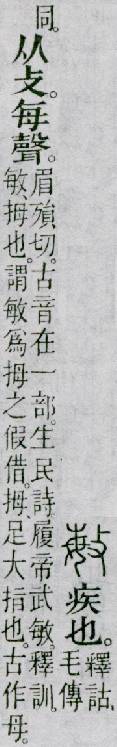 敏 疾也。
釋詁、
毛傳
同。
从攴。每聲。
眉殞切。古音在一部。生民詩。履帝武敏。釋訓。
敏、拇也。謂敏爲拇之假借。拇、足大指也。古作母。